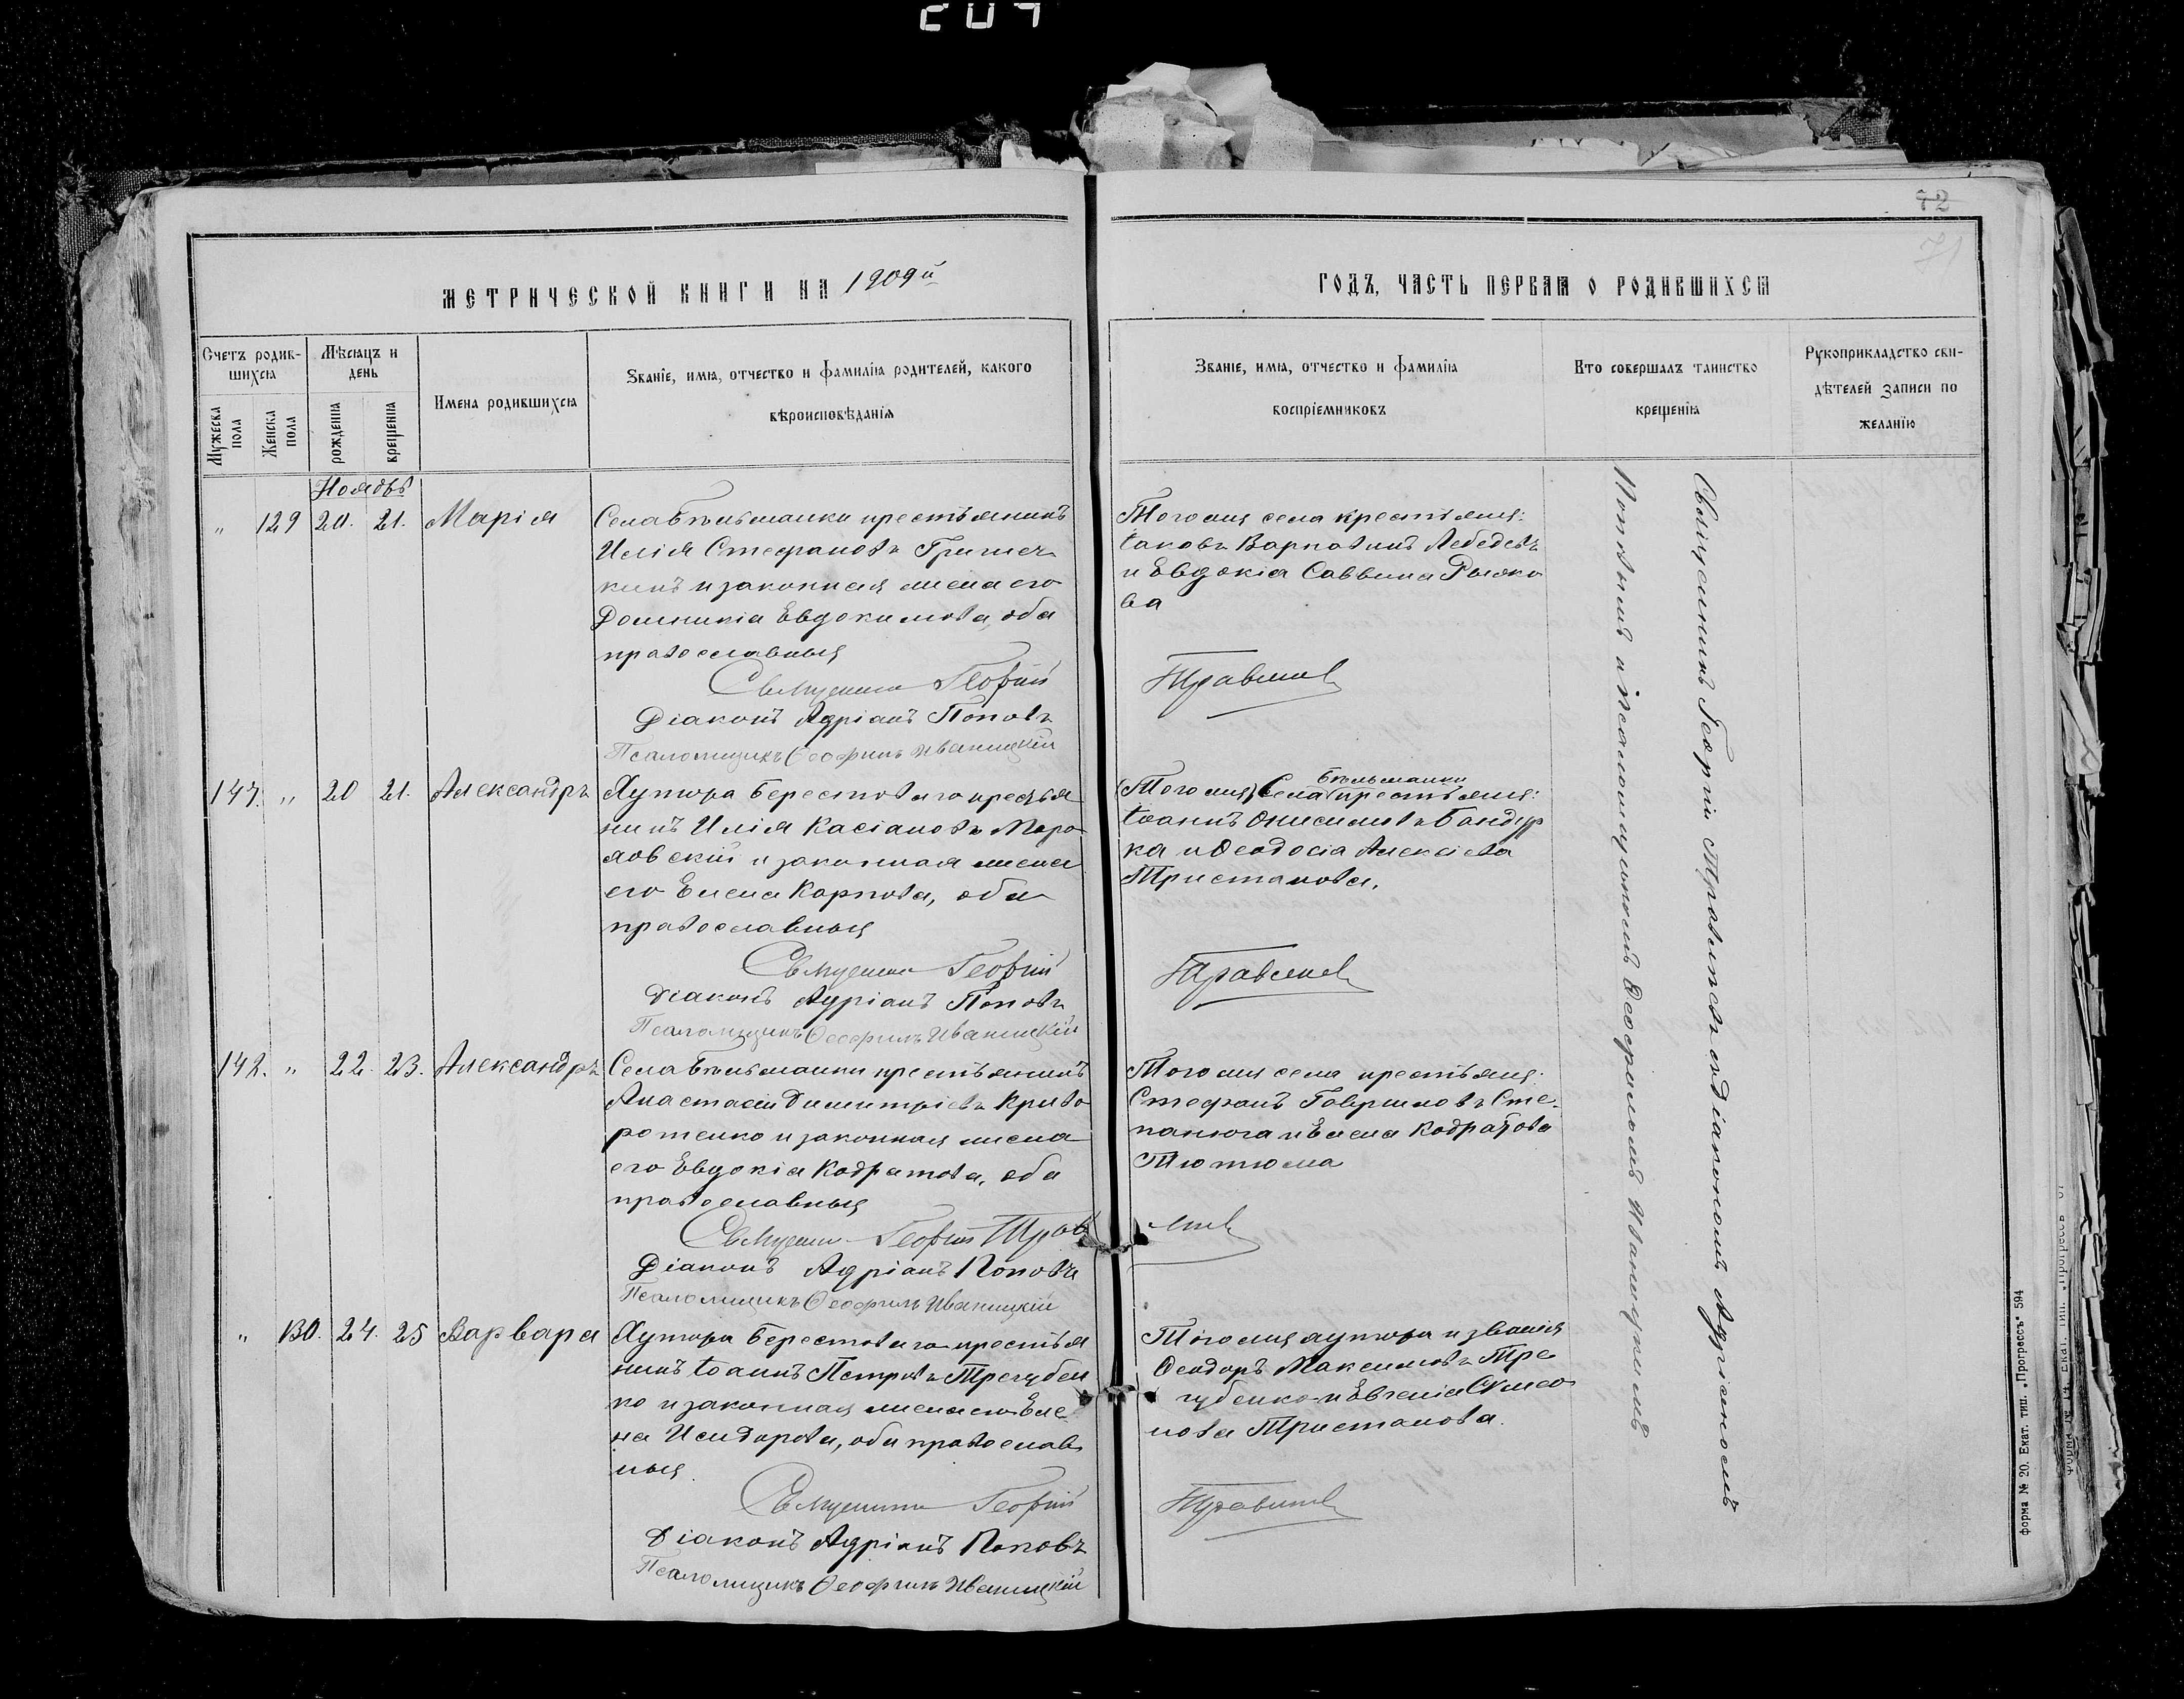 204
72
71
МЕТРИЧЕСКОЙ КНИГИ НА 1909й
ГОДЪ, ЧАСТЬ ПЕРВАЯ О РОДИВШИХСЯ
Счетъ родив-
шихся
Мужеска пола
Женска пола
Мѣсяцъ и
день
рожденія
крещенія
Имена родившихся
Званіе, имя, отчество и фамилія родителей, какого
вѣроисповѣданія
Званіе, имя, отчество и фамилія
воспріемниковъ
Кто совершалъ таинство
крещенія
Рукоприкладство сви-
дѣтелей записи по
желанію
Ноябрь
" 129 20. 21. Марія
Села Бѣльманки крестьянинъ
Илія Стефановъ Гришеч
кинъ и законная жена его
Домникія Евдокимова, оба
православныя
Священникъ Георгій
Діаконъ Адріанъ Поповъ
Псаломщикъ Ѳеофилъ Иваницкій
Того же села крестьяне:
Іаковъ Карповъ Лебедевъ
и Евдокія Саввина Рыжко
ва
Правитель
147. " 20 21. Александръ
Хутора Берестового крестья
нинъ Илія Касіановъ
и законная жена
его Елена Карпова, оба
православныя
Священникъ Георгій
Діаконъ Адріанъ Поповъ
Псаломщикъ Ѳеофилъ Иваницкій
Бѣльманки
(Того же) Села крестьяне:
Іоаннъ Онисимовъ Бандур
ка и Ѳеодосія Алексіева
Тристанова.
142. " 22. 23. Александръ
Села Бѣльманки крестьянинъ
Анастасій Димитріевъ Криво
ротенко и законная жена
его Евдокія Кодратова, оба
православныя
Священникъ Георгій
Діаконъ Адріанъ Поповъ
Псаломщикъ Ѳеофилъ Иваницкій
Того же села крестьяне:
Стефанъ Гавриловъ Сте-
панюга и Елена Кодратова
" 130. 24. 25 Варвара
Хутора Берестового крестья
нинъ Іоаннъ Петровъ Трегубен
ко и законная жена его Еле
на Исидорова, оба православ
ныя
Священникъ Георгій
Діаконъ Адріанъ Поповъ
Псаломщикъ Ѳеофилъ Иваницкій
Того же хутора и званія
Ѳеодоръ Максимовъ Тре
губенко и Евгенія Симео
нова Тристанова.
Священникъ Георгій съ діакономъ Адріаномъ
Поповымъ и псаломщикомъ Ѳеофиломъ Иваницкимъ
форма № 20. Екат. тип. „Прогрессъ" 594